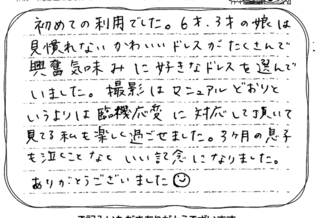 初めての利用でした。6才、3才の娘は
見慣れないかわいいドレスがたくさんで
興奮気味みに好きなドレスを選んで
いました。撮影はマニュアルどおりと
いうよりは臨機応変に対応して頂いて
見てる私も楽しく過ごせました。3ヶ月の息子
も泣くことなくいい記念になりました。
ありがとうございました☺